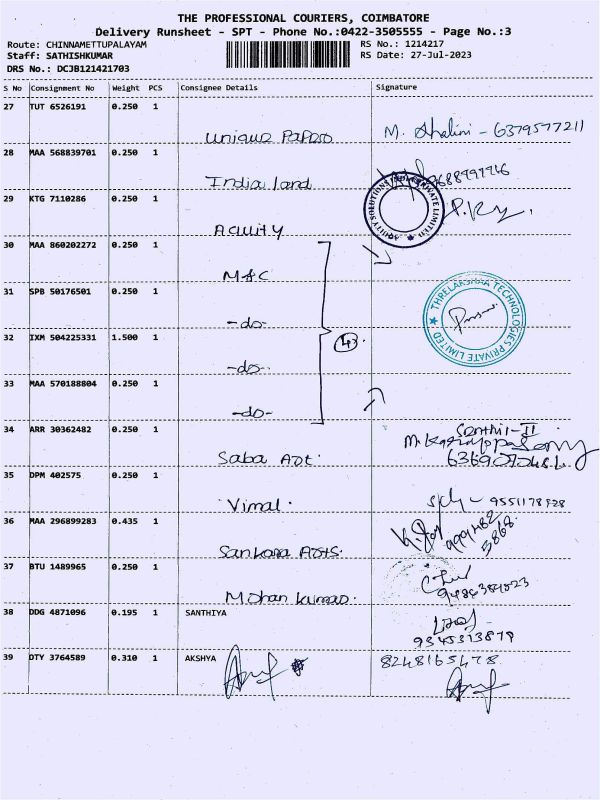 THE PROFESSIONAL COURIERS, COIMBATORE
Delivery Runsheet - SPT - Phone No.:0422-3505555 - Page No.:3
Route: CHINNAMETTUPALAYAM RS No.: 1214217
Staff: SATHISHKUMAR RS Date: 27-Jul-2023
DRS No.: DCJB121421703
S No Consignment No Weight PCS Consignee Details Signature
27 TUT 6526191 0.250 1
Unique Papers M. Shalini - 6379577211
28 MAA 568839701 0.250 1
India land
29 KTG 7110286 0.250 1
ACUITY SOLUTIONS PRIVATE LIMITED
Acuity
30 MAA 860202272 0.250 1
M&C
31 SPB 50176501 0.250 1
THRELAKSHAA TECHNOLOGIES PRIVATE LIMITED
-do-
32 IXM 504225331 1.500 1
-do-
33 MAA 570188804 0.250 1
-do-
34 ARR 30362482 0.250 1
Senthil-II
Saba Art
35 DPM 402575 0.250 1
Vimal. 9551178928
36 MAA 296899283 0.435 1
Sankara Arts.
37 BTU 1489965 0.250 1
Mohan kumar.
38 DDG 4871096 0.195 1 SANTHIYA
9345313879
39 DTY 3764589 0.310 1 AKSHYA 8248165478